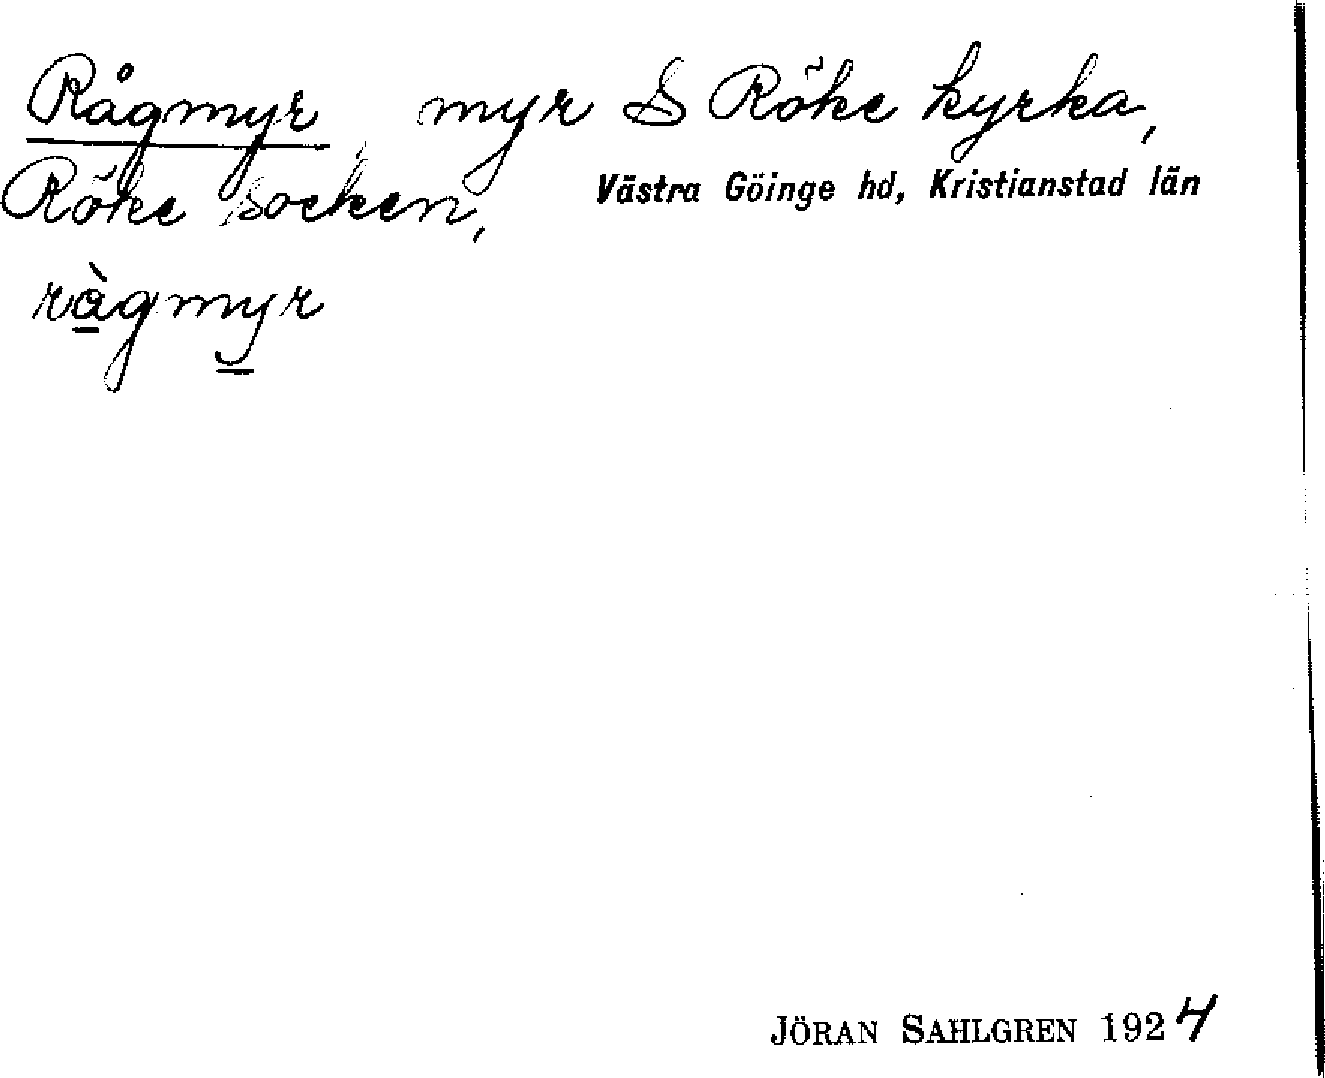 Rågmyr, myr S Röke kyrka,
Röke socken, Västra Göinge hd, Kristianstad län
ràgmyr
JÖRAN SAHLGREN 1924